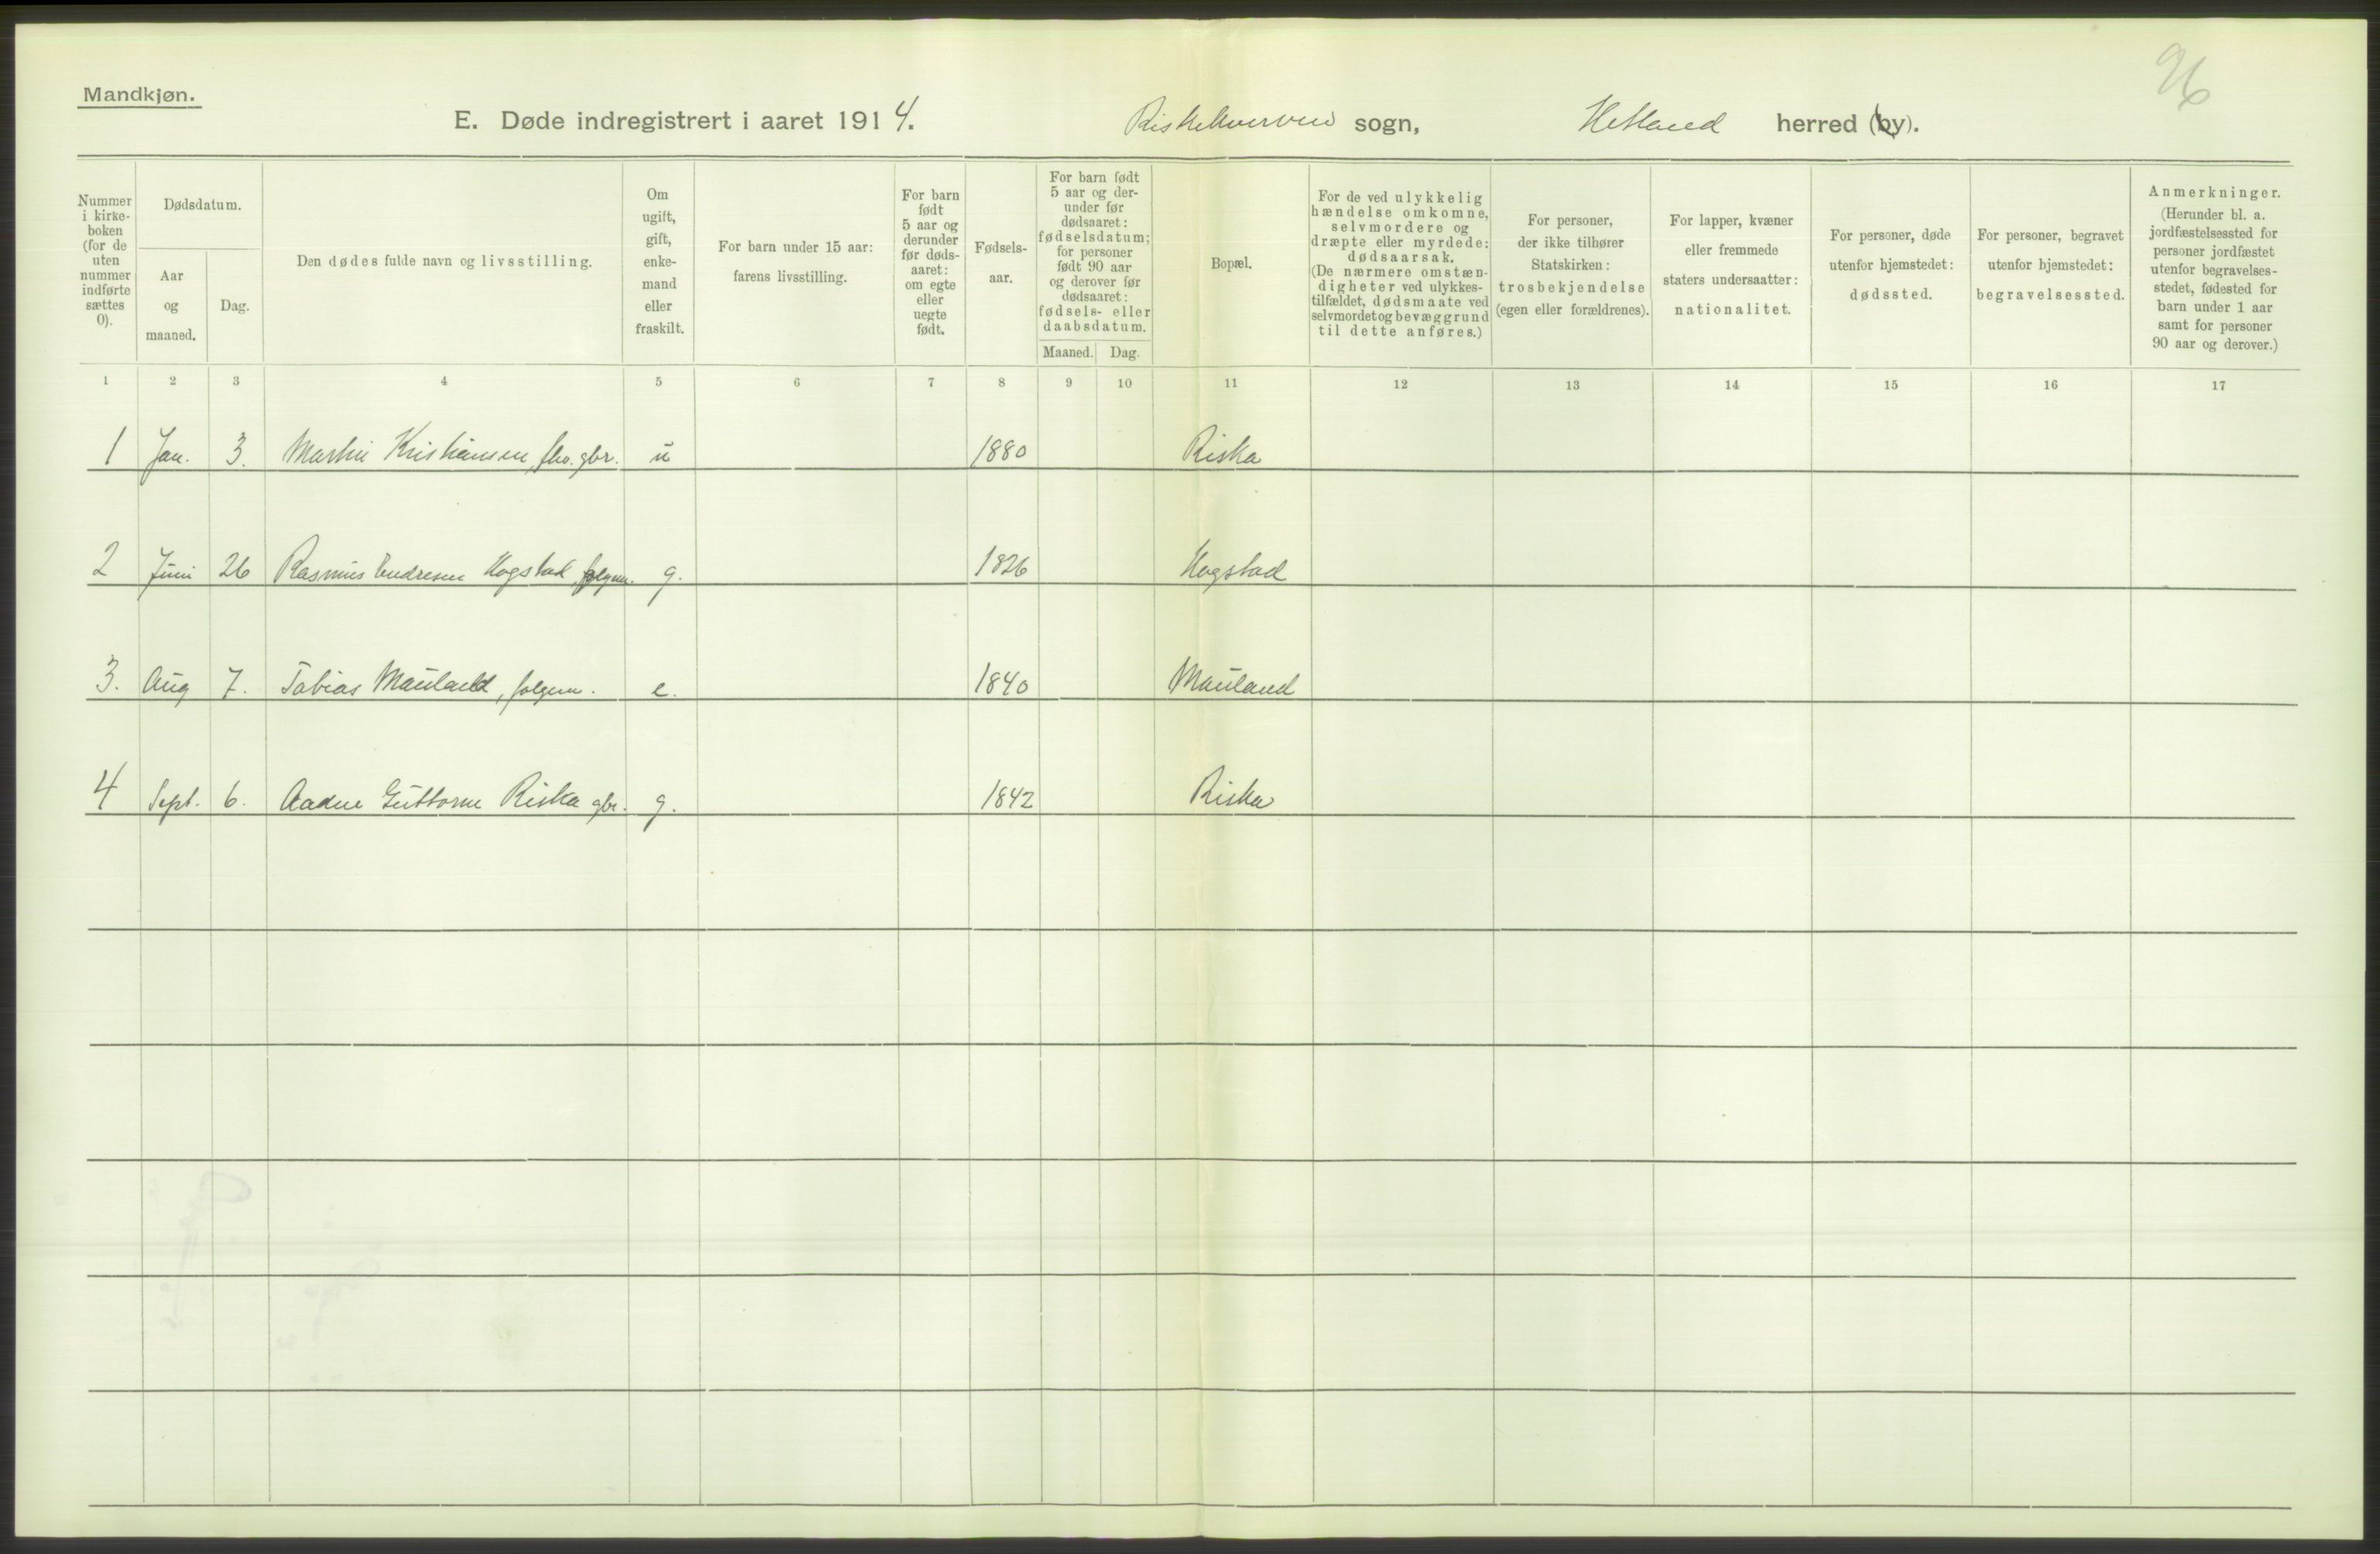 96
Mandkjøn.
E. Døde indregistrert i aaret 1914. Riskekverven sogn, Hetland herred (by).
Nummer i kirke- boken (for de uten nummer indførte sættes 0).
Dødsdatum.
Aar og maaned.
Dag.
Den dødes fulde navn og livsstilling.
Om ugift, gift, enke- mand eller fraskilt.
For barn under 15 aar: farens livsstilling.
For barn født 5 aar og derunder før døds- aaret: om egte eller uegte født.
Fødsels- aar.
For barn født 5 aar og der- under før dødsaaret: fødselsdatum; for personer født 90 aar og derover før dødsaaret: fødsels- eller daabsdatum.
Maaned. Dag.
Bopæl.
For de ved ulykkelig hændelse omkomne, selvmordere og dræpte eller myrdede: dødsaarsak. (De nærmere omstæn- digheter ved ulykkes- tilfældet, dødsmaate ved selvmordet og bevæggrund til dette anføres.)
For personer, der ikke tilhører Statskirken: trosbekjendelse (egen eller forældrenes).
For lapper, kvæner eller fremmede staters undersaatter: nationalitet.
For personer, døde utenfor hjemstedet: dødssted.
For personer, begravet utenfor hjemstedet: begravelsessted.
Anmerkninger. (Herunder bl. a. jordfæstelsessted for personer jordfæstet utenfor begravelses- stedet, fødested for barn under 1 aar samt for personer 90 aar og derover.)
1 2 3 4 5 6 7 8 9 10 11 12 13 14 15 16 17
1 Jan. 3. Martin Kristiansen, fhv. gbr. u 1880 Riska
2 Juni 26 Rasmus Endresen Hogstad, folgem. g. 1826 Hogstad
3. Aug 7. Tobias Mauland, folgem. e. 1840 Mauland
4 Sept. 6. Aadne Guttorm Riska gbr. g. 1842 Riska